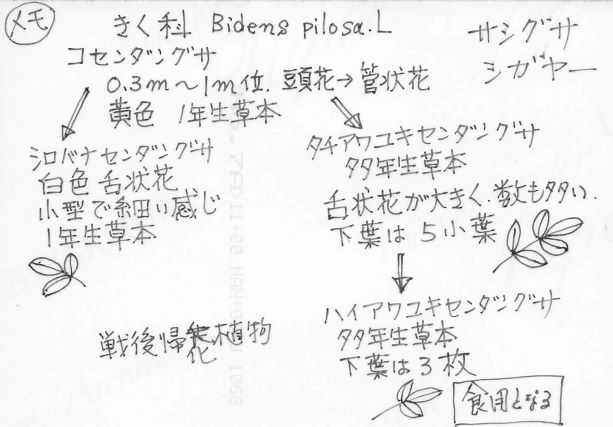 メモ
きく科 Bidens pilosa.L
サシグサ
シガヤー
コセンダングサ
0.3m〜1m位. 頭花→管状花
黄色 1年生草本
シロバナセンダングサ
白色 舌状花
小型で細い感じ
1年生草本
タチアワユキセンダングサ
多年生草本
舌状花が大きく、数も多い.
下葉は5小葉
ハイアワユキセンダングサ
多年生草本
下葉は3枚
食用となる
戦後帰化植物